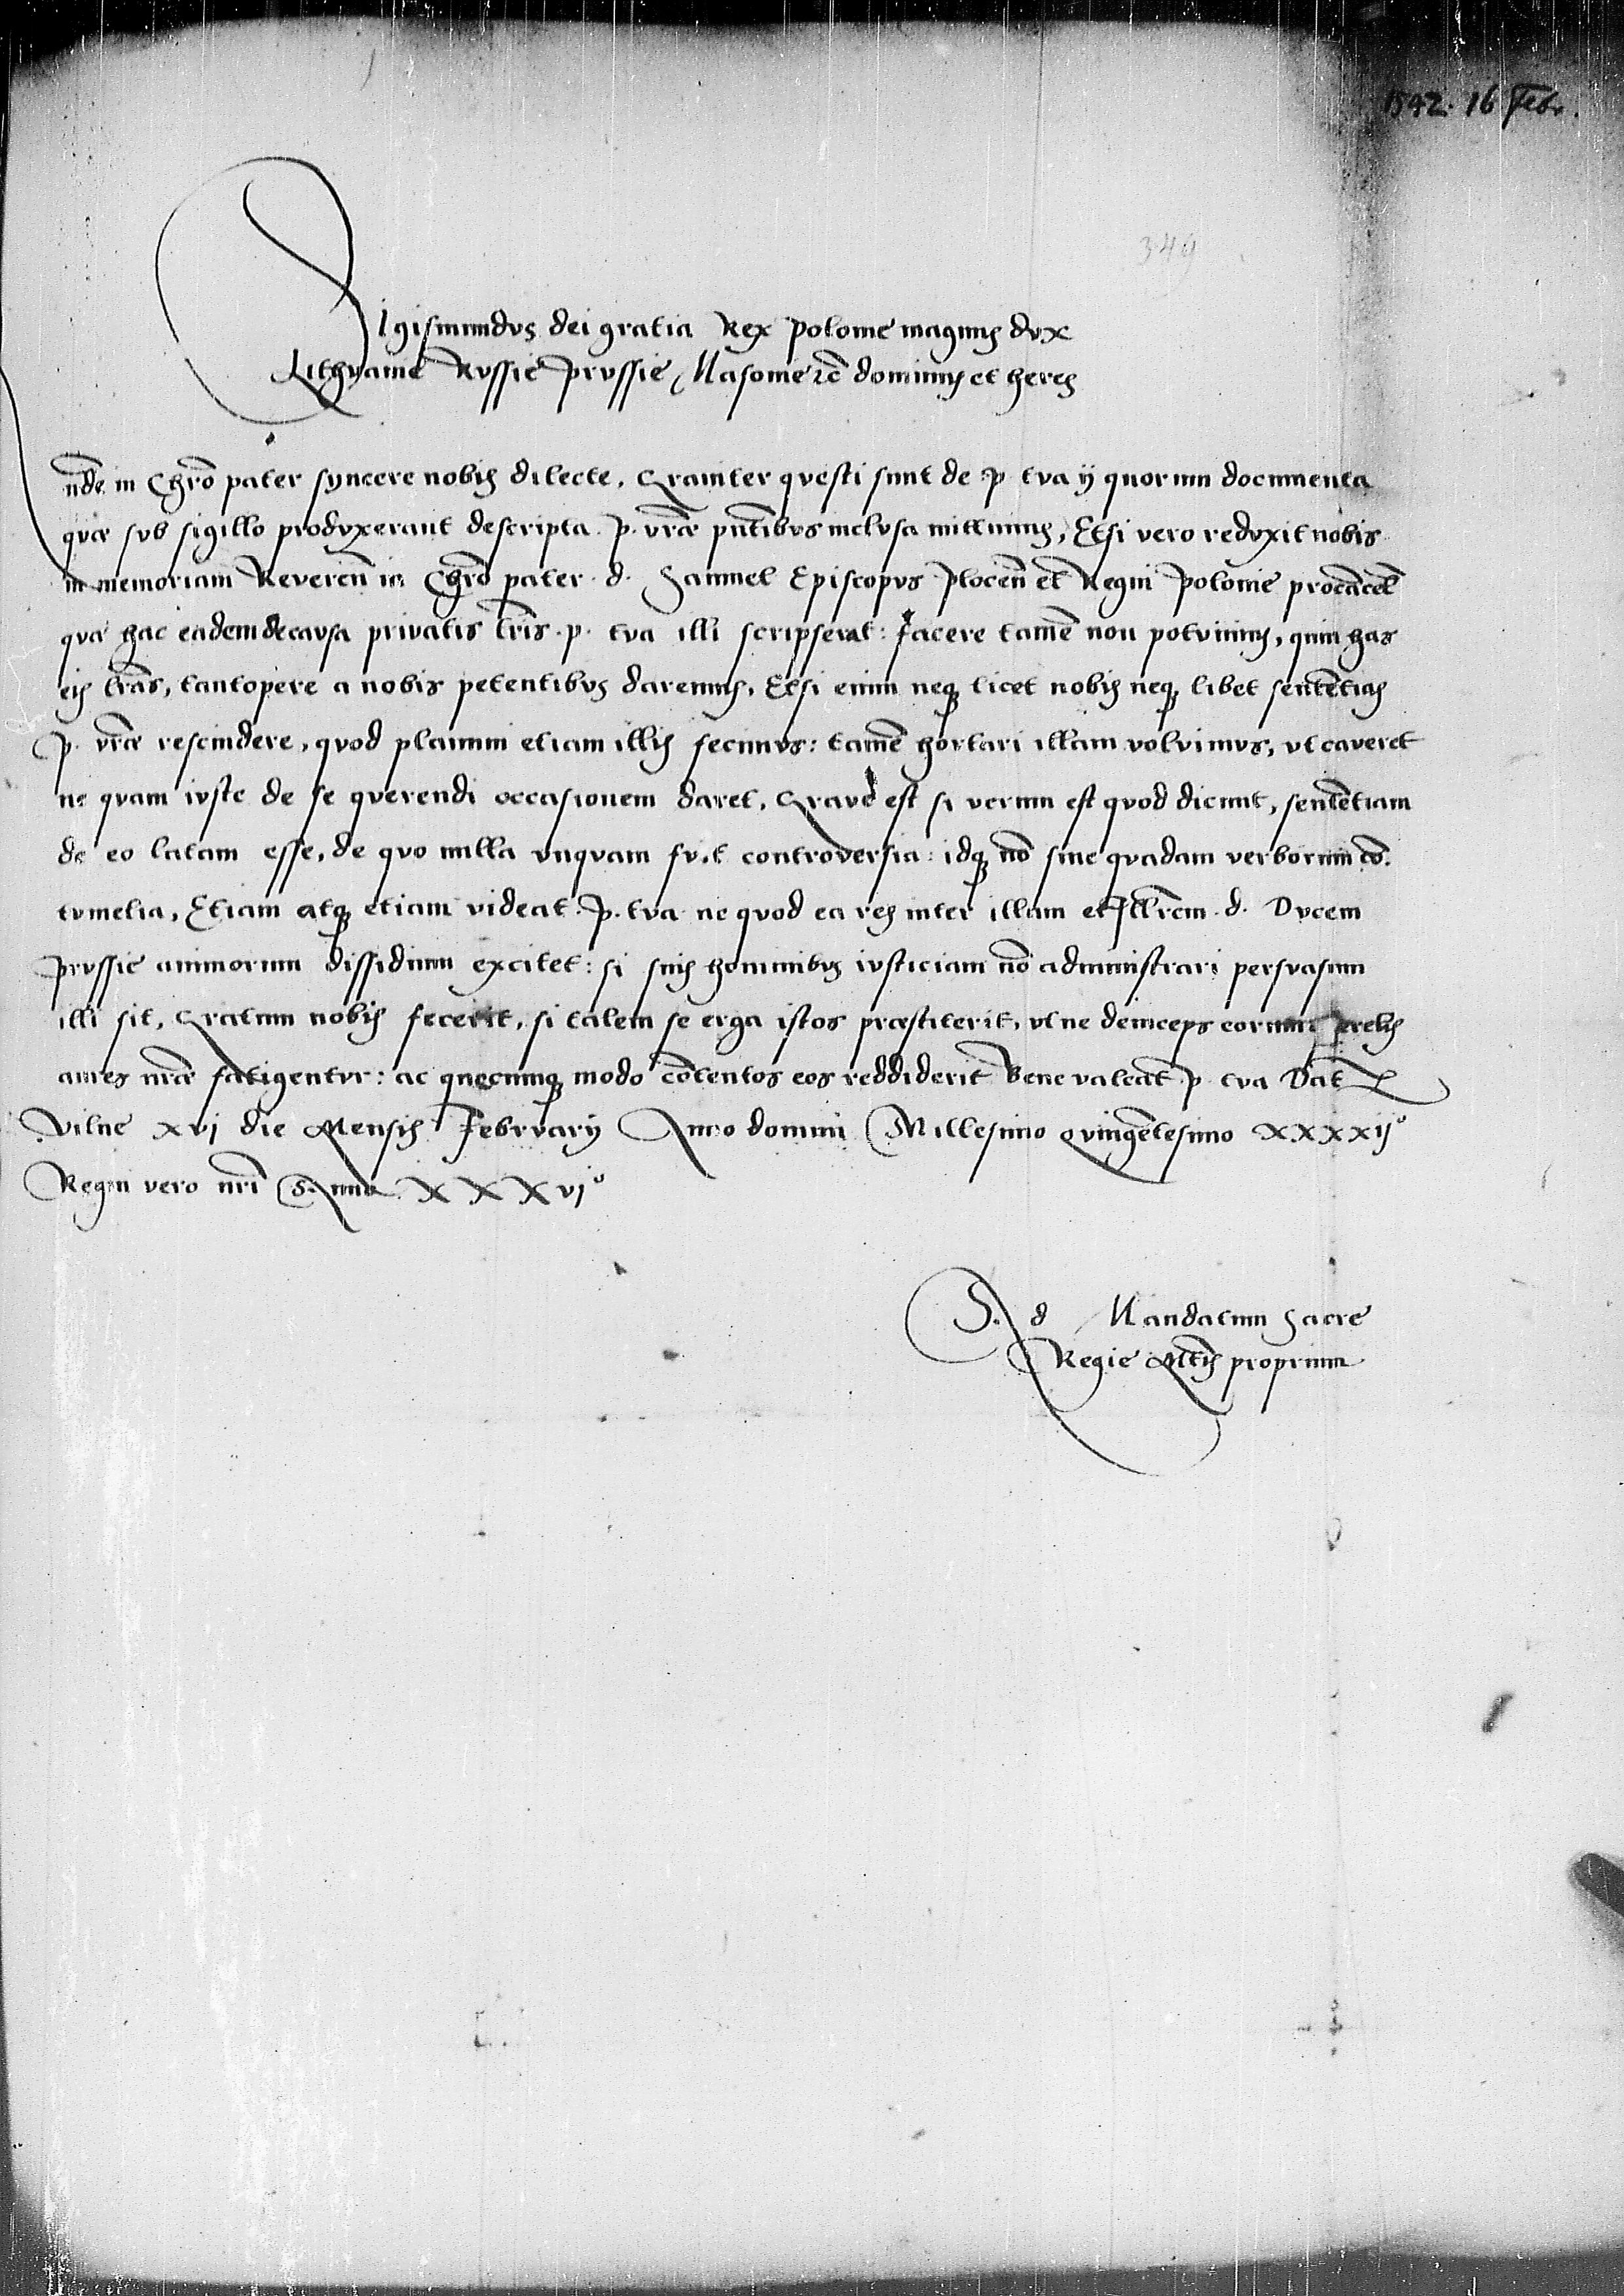 1542. 16 Febr.
349
Sigismundus dei gratia Rex Polonie magnus dux
Lithuanie Russie Prussie Masouie &c̃ dominus et heres
Rnde in Chro pater syncere nobis dilecte. Grauiter questi sunt de p. tua ij quorum documenta
quæ sub sigillo produxerant descripta p. vræ pñtibus inclusa mittimus. Etsi vero reduxit nobis
in memoriam Reveren̄ in Chro pater d. Samuel Episcopus Plocen̄ et Regni Polonie procancel̄
quæ hac eadem de causa privatis lr̄is p. tua illi scripserat: facere tamē non potuimus, quin has
eis lr̄as, tantopere a nobis petentibus daremus. Etsi enim neq licet nobis neq libet sentētias
p. vræ rescindere, quod planum etiam illis fecimus: tamē hortari illam voluimus, ut caveret
ne quam iuste de se querendi occasionem daret. Grave est si verum est quod dicunt, sentētiam
de eo latam esse, de quo nulla unquam fuit controversia: idq nō sine quadam verborum cō-
tumelia. Etiam atq etiam videat p. tua ne quod ea res inter illam et Illr̄em d. Ducem
Prussie animorum dissidium excitet: si suis hominibus iusticiam nō administrari persuasum
illi sit. Gratum nobis fecerit, si talem se erga istos præstiterit, ut ne deinceps eorum querelis
aures nræ fatigentur: ac quocumq modo cōtentos eos reddiderit Bene valeat p. tua Dat
Vilne xvi die Mensis Februarij Anno domini Millesimo quingētesimo xxxxijº
Regni vero nr̄i Anno xxxviº
Ad Mandatum Sacre
Regie Mtis proprium